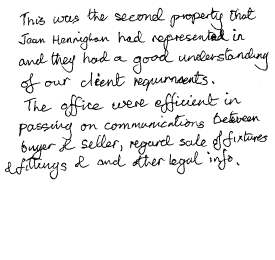 This was the second property that
Jean Hennighan had represented in
and they had a good understanding
of our client requirments.
The office were efficient in
passing on communications between
buyer & seller, regard sale of fixtures
& fittings & and other legal info.